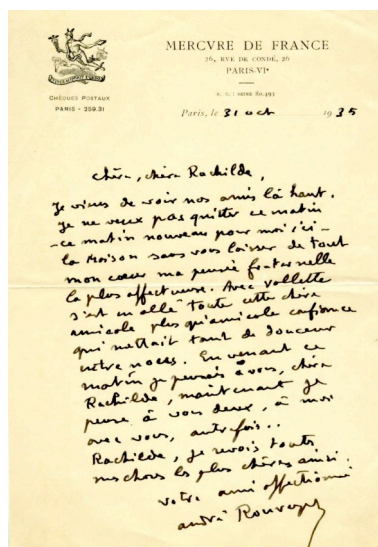 MERCVRE DE FRANCE
26, RVE DE CONDÉ, 26
PARIS-VIᵉ
CHÈQUES POSTAUX
PARIS - 259.31
R. C. SEINE 80.493
Paris, le 31 oct 1935
Chère, chère Rachilde,
Je viens de voir nos amis là haut.
Je ne veux pas quitter ce matin
- ce matin nouveau pour moi ici -
la Maison sans vous laisser de tout
mon cœur ma pensée fraternelle
la plus affectueuse. Avec Vallette
s'est en allé toute cette chère
amicale plus qu'amicale confiance
qui mettait tant de douceur
entre nous. En venant ce
matin je pensais à vous, chère
Rachilde, maintenant je
pense à vous deux, à moi
avec vous, autrefois..
Rachilde, je revois toutes
mes choses les plus chères ainsi.
votre ami affectionné
André Rouveyre